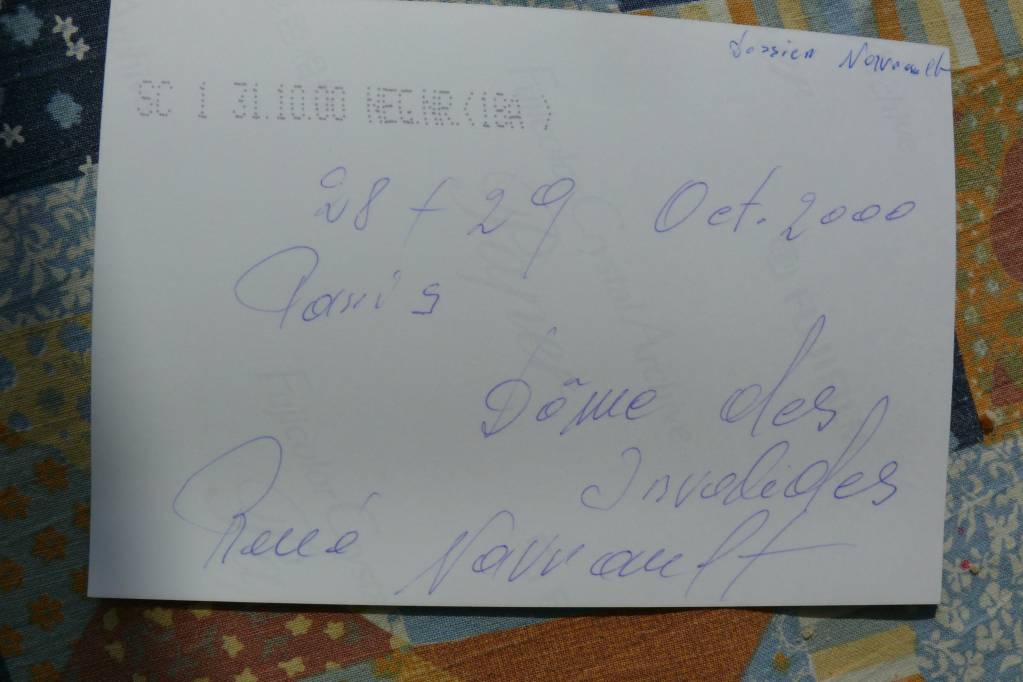 Dossier Navrault
SC 1 31.10.00 NEG.NR.(18A )
28 + 29 Oct. 2000
Paris
Dôme des
Invalides
René Navrault